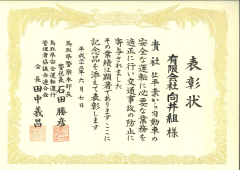 表彰状
有限会社向井組 様
貴社は平素から自動車の
安全な運転に必要な業務を
適正に行い交通事故の防止に
寄与されました
その業績は顕著でありますここに
記念品を添えて表彰します
平成二十六年六月七日
鳥取県警察本部長
警視長 石田勝彦
鳥取県安全運転運行
管理者協議会連合会
会長 田中義昌